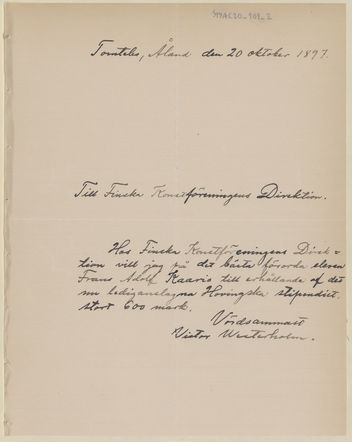 Tomtebo, Åland den 20 oktober 1897.
Till Finska Konstföreningens Direktion.
Hos Finska Konstföreningens Direk=
tion vill jag på det bästa förorda eleven
Frans Adolf Kaario till erhållande af det
nu lediganslagna Hovingska stipendiet.
stort 600 mark.
Vördsammast
Victor Westerholm.